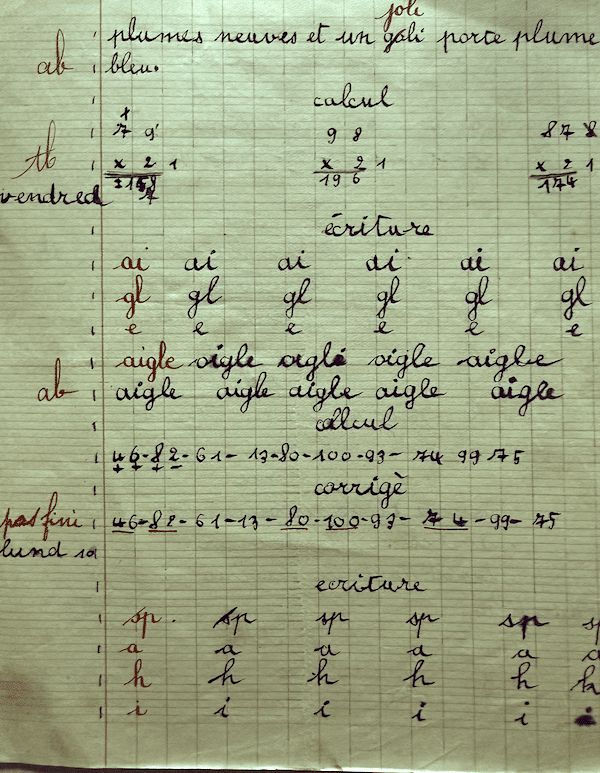 joli
plumes neuves et un goli porte plume
ab bleu.
calcul
7 9 9 8 8 7 8
tb x 2 1 x 2 1 x 2 1
196 174
vendred
écriture
ai ai ai ai ai ai
gl gl gl gl gl gl
e e e e e e
aigle oigle aigle oigle aigle
ab aigle aigle aigle aigle aigle
calcul
46-82-61-13-80-100-93-74 99 75
corrigè
pas fini 46-82-61-13-80-100-93-74-99-75
lund 10
ecriture
sp. sp sp sp sp sp
a a a a a a
h h h h h h
i i i i i i